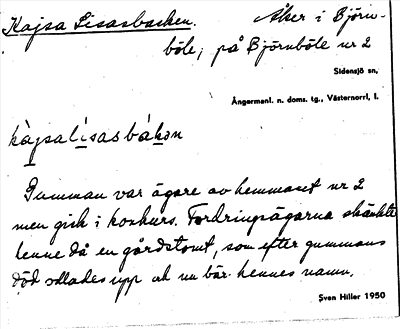 Kajsa Lisasbacken. Åker i Björn-
böle; på Björnböle nr 2
Sidensjö sn,
Ångermanl. n. doms. tg., Västernorrl. l.
kàjsalísasbákən
Gumman var ägare av hemmanet nr 2
men gick i konkurs. Fordringsägarna skänkte
henne då en gårdstomt, som efter gummans
död odlades upp och nu bär hennes namn.
Sven Hiller 1950